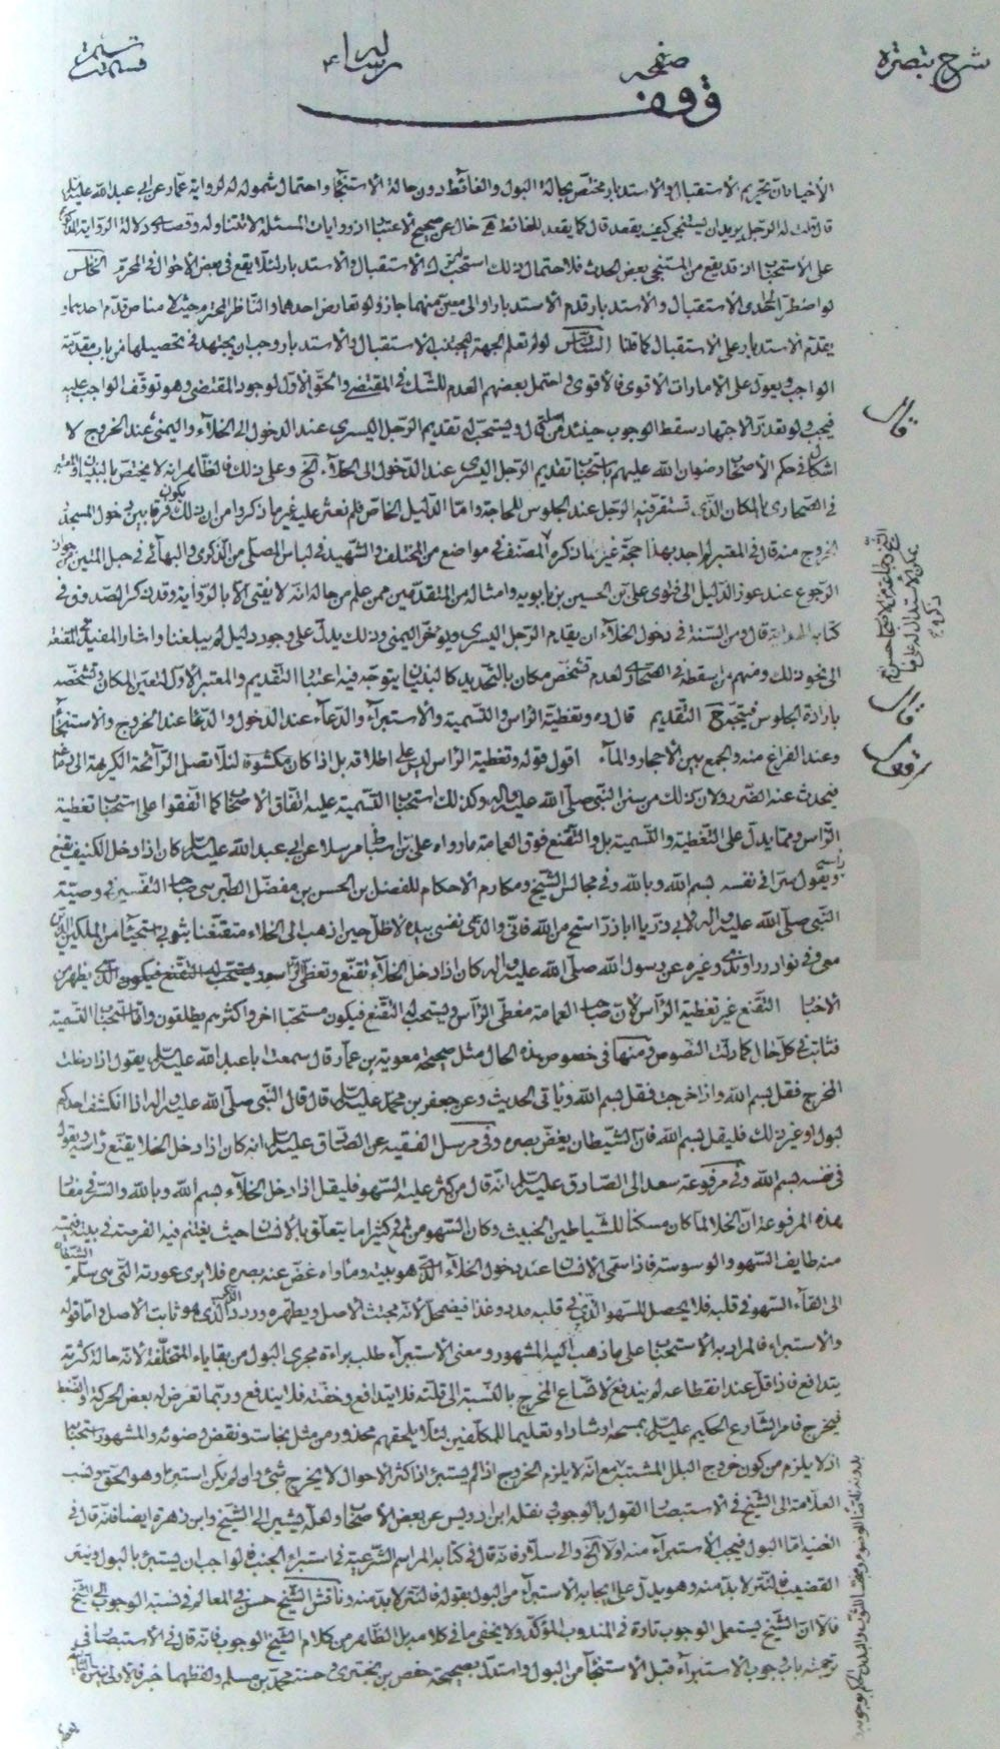 شرح تبصرة
صفحه
رساله
وقف
الأخبار ان تحريم الاستقبال والاستدبار مختص بحالة البول والغائط دون حالة الاستنجاء واحتمال شموله له لرواية عمار عن ابي عبد الله عليه السلم
قال قلت له الرجل يريد ان يستنجي كيف يقعد قال كما يقعد للغائط خال عن صحيح الاعتبار اذ روايات المسئلة لا تتناوله وقصارى دلالة الرواية المذكورة
على الاستحباب اذ قد يقع من المستنجي بعض الحدث فلاحتمال ذلك استحب له ترك الاستقبال والاستدبار لئلا يقع في بعض الأحوال في المحرم الخامس
لو اضطر الى احدى الاستقبال والاستدبار قدم الاستدبار او الى معين منهما جاز ولو تعارض احدهما والناظر المحترم حيث لا مناص قدم احدهما و
يقدم الاستدبار على الاستقبال كما قلنا السادس لو لم تعلم الجهة ليجتنب الاستقبال والاستدبار وجب ان يجتهد في تحصيلها من باب مقدمة
الواجب ويعول على الامارات الاقوى فالأقوى واحتمل بعضهم العدم للشك في المقتضي والحق الأول لوجود المقتضي وهو توقف الواجب عليه
فيجب ولو تعذر الاجتهاد سقط الوجوب حينئذ قال ويستحب له تقديم الرجل اليسرى عند الدخول الى الخلاء واليمنى عند الخروج لا
اشكال في حكم الأصحاب رضوان الله عليهم باستحباب تقديم الرجل اليسرى عند الدخول الى الخلاء الخ وعلى ذلك فالظاهر انه لا يختص بالبنيان
في الصحاري بالمكان الذي تستقر فيه الرجل عند الجلوس للحاجة واما الدليل الخاص فلم نعثر عليه غير ما ذكروا من ان ذلك يكون فرقا بين دخول المسجد و
الخروج منه قال في المعتبر لم اجد بهذا حجة غير ما ذكره المصنف في مواضع من المختلف والشهيد في لباس المصلي من الذكرى والبهائي في حبل المتين من جواز
الرجوع عند عوز الدليل الى فتاوى علي بن الحسين بن بابويه وامثاله من المتقدمين ممن علم من حاله انه لا يفتي الا بالرواية وقد ذكر الصدوق في
كتابه الهداية قال ومن السنة في دخول الخلاء ان يقدم الرجل اليسرى ويؤخر اليمنى وذلك يدل على وجود دليل لم يبلغنا واشار المفيد في المقنعة
الى نحو ذلك ومنهم من اسقطه في الصحاري لعدم تشخص مكان بالتحديد كالبنيان ليتوجه فيه اعتبار التقديم والمعتبر الأول لتعين المكان وتشخصه
بارادة الجلوس فيتجه التقديم قال ره وتغطية الراس والتسمية والاستبراء والدعاء عند الدخول والدعاء عند الخروج والاستنجاء
وعند الفراغ منه والجمع بين الأحجار والماء اقول قوله وتغطية الراس ليس على اطلاقه بل اذا كان مكشوفا لئلا تصل الرائحة الكريهة الى دماغه
فيحدث عنه الضرر ولان ذلك من سنن النبي صلى الله عليه واله وكذلك استحباب التسمية عليه اتفاق الأصحاب كما اتفقوا على استحباب تغطية
الراس ومما يدل على التغطية والتسمية بل والتقنع فوق العمامة ما رواه علي بن اسباط مرسلا عن ابي عبد الله عليه السلم كان اذا دخل الكنيف يقنع راسه
ويقول سرا في نفسه بسم الله وبالله وفي مجالس الشيخ ومكارم الأحكام للفضل بن الحسن بن مفضل الطبرسي صاحب التفسير في وصية
النبي صلى الله عليه واله لابي ذر يا اباذر استح من الله فاني والذي نفسي بيده لاظل حين اذهب الى الخلاء متقنعا بثوبي استحياء من الملكين الذين
معي وفي نوادر الراوندي وغيره عن رسول الله صلى الله عليه واله كان اذا دخل الخلاء تقنع وتغطى يظهر من
الاخبار التقنع غير تغطية الراس لان صاحب العمامة مغطى الراس ويستحب له التقنع فيكون مستحبا اخر واكثرهم يطلقون واما استحباب التسمية
فثابت في كل حال كما دلت النصوص ومنها في خصوص هذه الحال مثل صحيحة معوية بن عمار قال سمعت ابا عبد الله عليه السلم يقول اذا دخلت
المخرج فقل بسم الله واذا خرجت فقل بسم الله وياتي الحديث وعن جعفر بن محمد عليه السلم قال قال النبي صلى الله عليه واله اذا انكشف احدكم
لبول او غير ذلك فليقل بسم الله فان الشيطان يغض بصره وفي مرسل الفقيه عن الصادق عليه السلم انه كان اذا دخل الخلا يقنع راسه ويقول
في نفسه بسم الله وفي مرفوعة سعد الى الصادق عليه السلم انه قال من كثر عليه السهو فليقل اذا دخل الخلاء بسم الله وبالله والسر في مفاد
هذه المرفوعة ان الخلا لما كان مسكنا للشياطين الخبيث وكان السهو من كثيرا ما يتعلق بالانسان حيث يغتنم فيه الفرصة في بيته فيمسه
منه طايف السهو والوسوسة فاذا سمى الانسان عند دخول الخلاء الذي هو بيته وماواه غض عنه بصره فلا يرى عورته التي هي سلم الشيطان
الى القاء السهو في قلبه فلا يحصل للسهو الذي في قلبه مدد وغذا فيضمحل لأنه مجتث الاصل ويطهره ورود الذكر الذي هو ثابت الاصل واما قوله
والاستبراء فالمراد به الاستحباب على ما ذهب اليه المشهور ومعنى الاستبراء طلب براءة مجرى البول من بقاياه المتخلفة لأنه حالة كثرته
يتدافع فاذا قل عند انقطاعه لم يندفع لاتساع المخرج بالنسبة الى قلته فلا يتدافع وخفته فلا يندفع وربما تعرض له بعض الحركة والضغط
فيخرج فامر الشارع الحكيم عليه السلم بمسحه ارشادا وتعليما للمكلفين لئلا يلحقهم محذور من مثل نجاسة ونقض وضوء والمشهور استحبابا
اذ لا يلزم من كون خروج البلل المشتبه مع انه لا يلزم الخروج اذا لم يستبرئ اذ اكثر الأحوال لا يخرج شئ وان لم يكن استبراء وهو الحق ونسب
العلامة الى الشيخ في الاستبصار القول بالوجوب ونقله ابن ادريس عن بعض الأصحاب ولعله يشير الى الشيخ وابن زهرة ايضا فانه قال في
الغنية اما البول فيجب الاستبراء منه اولا الخ والى سلار فانه قال في كتابه المراسم الشرعية في استبراء الجنب فالواجب ان يستبرئ بالبول وينتر
القضيب فالنتر لا بد منه وهو يدل على ايجابه الاستبراء من البول بقوله فالنتر لا بد منه وناقش الشيخ حسن في المعالم في نسبة الوجوب الى الشيخ
قال لان الشيخ يستعمل الوجوب تارة في المندوب المؤكد ولا يخفى ما في كلامه بل الظاهر من كلام الشيخ الوجوب فانه قال في الاستبصار في
ترجمته باب وجوب الاستبراء قبل الاستنجاء من البول واستدل بصحيحة حفص بن البختري وحسنة محمد بن مسلم ولفظهما خبر فالاولى
قال
قال